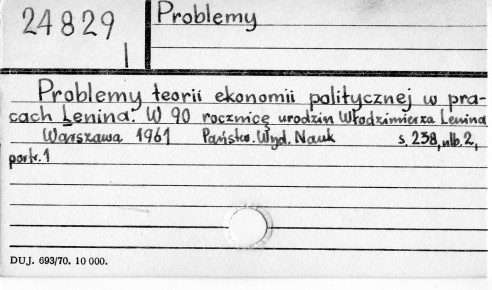 24829
Problemy
Problemy teorii ekonomii politycznej w pra-
cach Lenina. W 90 rocznicę urodzin Włodzimierza Lenina
Warszawa 1961 Państw. Wyd. Nauk s. 238, nlb. 2,
portr. 1
DUJ. 693/70. 10 000.